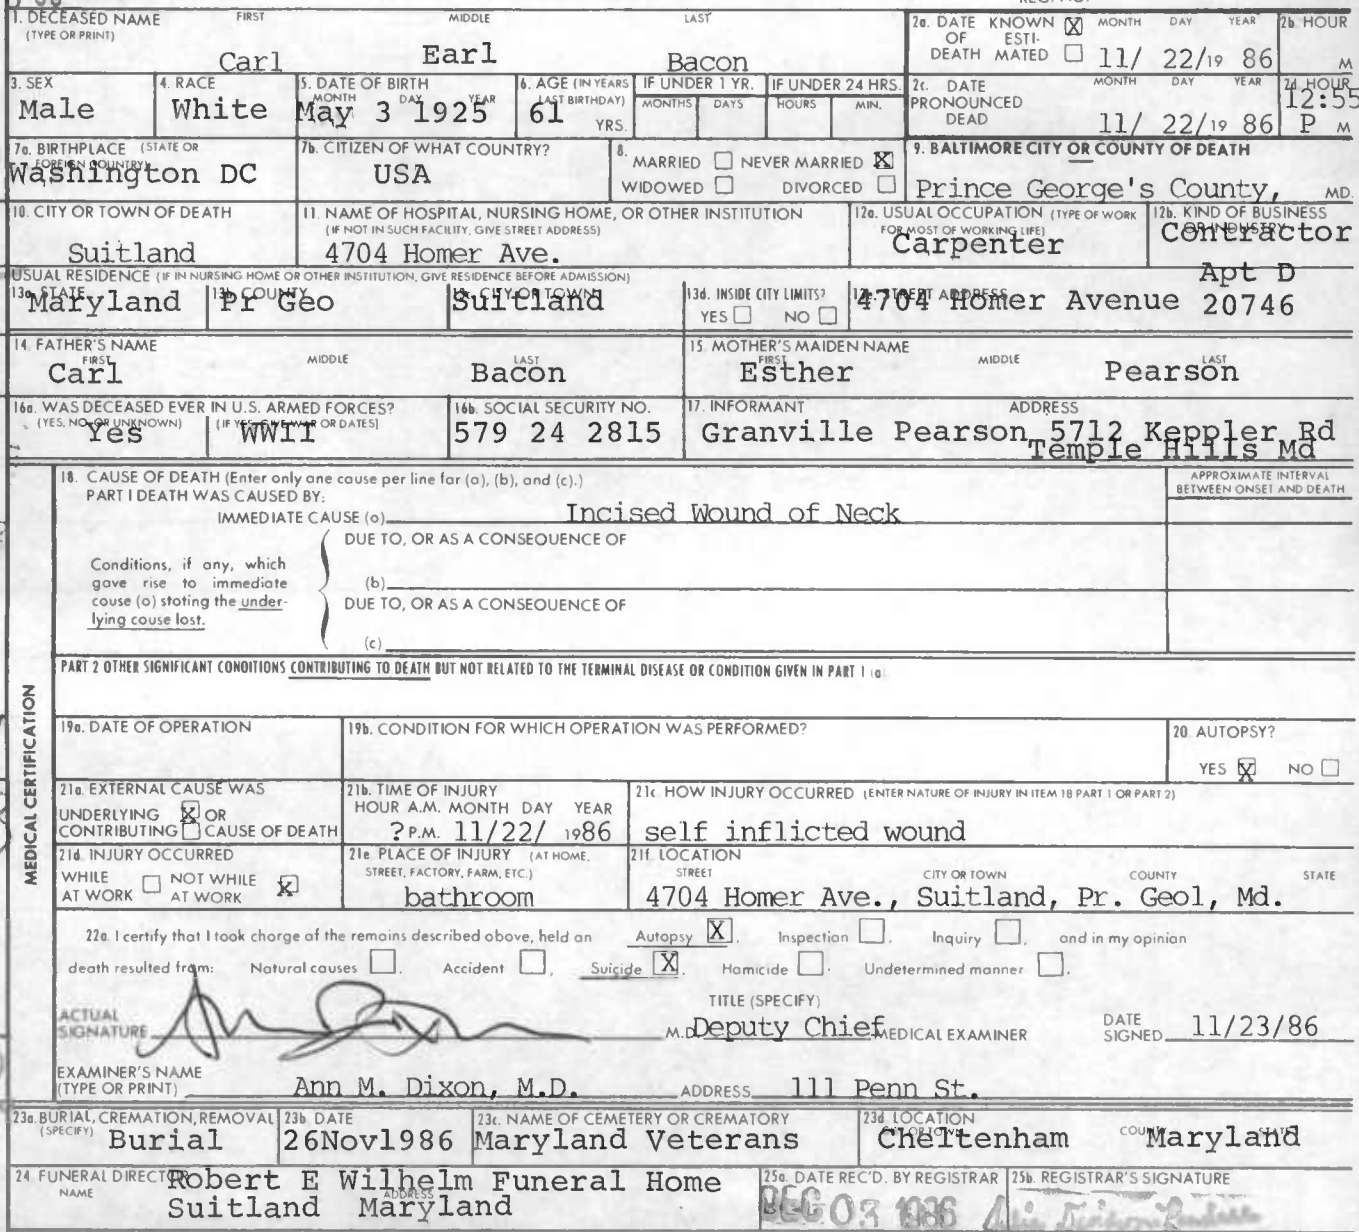 1. DECEASED NAME FIRST MIDDLE LAST
(TYPE OR PRINT)
Carl Earl Bacon
2a. DATE KNOWN X MONTH DAY YEAR 2b. HOUR
OF ESTI-
DEATH MATED 11/ 22/19 86 M
3. SEX 4. RACE 5. DATE OF BIRTH 6. AGE (IN YEARS IF UNDER 1 YR. IF UNDER 24 HRS.
MONTH DAY YEAR LAST BIRTHDAY) MONTHS DAYS HOURS MIN.
Male White May 3 1925 61 YRS.
2c. DATE MONTH DAY YEAR 2d. HOUR
PRONOUNCED 12:55
DEAD 11/ 22/19 86 P M
7a. BIRTHPLACE (STATE OR
FOREIGN COUNTRY)
Washington DC
7b. CITIZEN OF WHAT COUNTRY?
USA
8. MARRIED NEVER MARRIED X
WIDOWED DIVORCED
9. BALTIMORE CITY OR COUNTY OF DEATH
Prince George's County, MD.
10. CITY OR TOWN OF DEATH
Suitland
11. NAME OF HOSPITAL, NURSING HOME, OR OTHER INSTITUTION
(IF NOT IN SUCH FACILITY, GIVE STREET ADDRESS)
4704 Homer Ave.
12a. USUAL OCCUPATION (TYPE OF WORK
FOR MOST OF WORKING LIFE)
Carpenter
12b. KIND OF BUSINESS
OR INDUSTRY
Contractor
USUAL RESIDENCE (IF IN NURSING HOME OR OTHER INSTITUTION, GIVE RESIDENCE BEFORE ADMISSION)
13a. STATE 13b. COUNTY CITY OR TOWN 13d. INSIDE CITY LIMITS? STREET ADDRESS
Maryland Pr Geo Suitland YES NO 4704 Homer Avenue Apt D
20746
14. FATHER'S NAME
FIRST MIDDLE LAST
Carl Bacon
15. MOTHER'S MAIDEN NAME
FIRST MIDDLE LAST
Esther Pearson
16a. WAS DECEASED EVER IN U.S. ARMED FORCES?
(YES, NO, OR UNKNOWN) (IF YES, GIVE WAR OR DATES)
Yes WWII
16b. SOCIAL SECURITY NO.
579 24 2815
17. INFORMANT ADDRESS
Granville Pearson 5712 Keppler Rd
Temple Hills Md
MEDICAL CERTIFICATION
18. CAUSE OF DEATH (Enter only one cause per line for (a), (b), and (c).)
PART I DEATH WAS CAUSED BY:
APPROXIMATE INTERVAL
BETWEEN ONSET AND DEATH
IMMEDIATE CAUSE (a) Incised Wound of Neck
DUE TO, OR AS A CONSEQUENCE OF
Conditions, if any, which
gave rise to immediate
cause (a) stating the under-
lying cause last.
(b)
DUE TO, OR AS A CONSEQUENCE OF
(c)
PART 2 OTHER SIGNIFICANT CONDITIONS CONTRIBUTING TO DEATH BUT NOT RELATED TO THE TERMINAL DISEASE OR CONDITION GIVEN IN PART 1 (a)
19a. DATE OF OPERATION
19b. CONDITION FOR WHICH OPERATION WAS PERFORMED?
20. AUTOPSY?
YES X NO
21a. EXTERNAL CAUSE WAS
UNDERLYING X OR
CONTRIBUTING CAUSE OF DEATH
21b. TIME OF INJURY
HOUR A.M. MONTH DAY YEAR
? P.M. 11/22/ 1986
21c. HOW INJURY OCCURRED (ENTER NATURE OF INJURY IN ITEM 18 PART 1 OR PART 2)
self inflicted wound
21d. INJURY OCCURRED
WHILE NOT WHILE
AT WORK AT WORK X
21e. PLACE OF INJURY (AT HOME,
STREET, FACTORY, FARM, ETC.)
bathroom
21f. LOCATION
STREET CITY OR TOWN COUNTY STATE
4704 Homer Ave., Suitland, Pr. Geol, Md.
22a. I certify that I took charge of the remains described above, held an Autopsy X, Inspection, Inquiry, and in my opinion
death resulted from: Natural causes, Accident, Suicide X, Homicide, Undetermined manner.
TITLE (SPECIFY)
ACTUAL
SIGNATURE M.D. Deputy Chief MEDICAL EXAMINER
DATE
SIGNED 11/23/86
EXAMINER'S NAME
(TYPE OR PRINT) Ann M. Dixon, M.D. ADDRESS 111 Penn St.
23a. BURIAL, CREMATION, REMOVAL
(SPECIFY) Burial
23b. DATE
26Nov1986
23c. NAME OF CEMETERY OR CREMATORY
Maryland Veterans
23d. LOCATION
CITY OR TOWN COUNTY STATE
Cheltenham Maryland
24 FUNERAL DIRECTOR
NAME Robert E Wilhelm Funeral Home
ADDRESS
Suitland Maryland
25a. DATE REC'D. BY REGISTRAR
DEC 03 1986
25b. REGISTRAR'S SIGNATURE